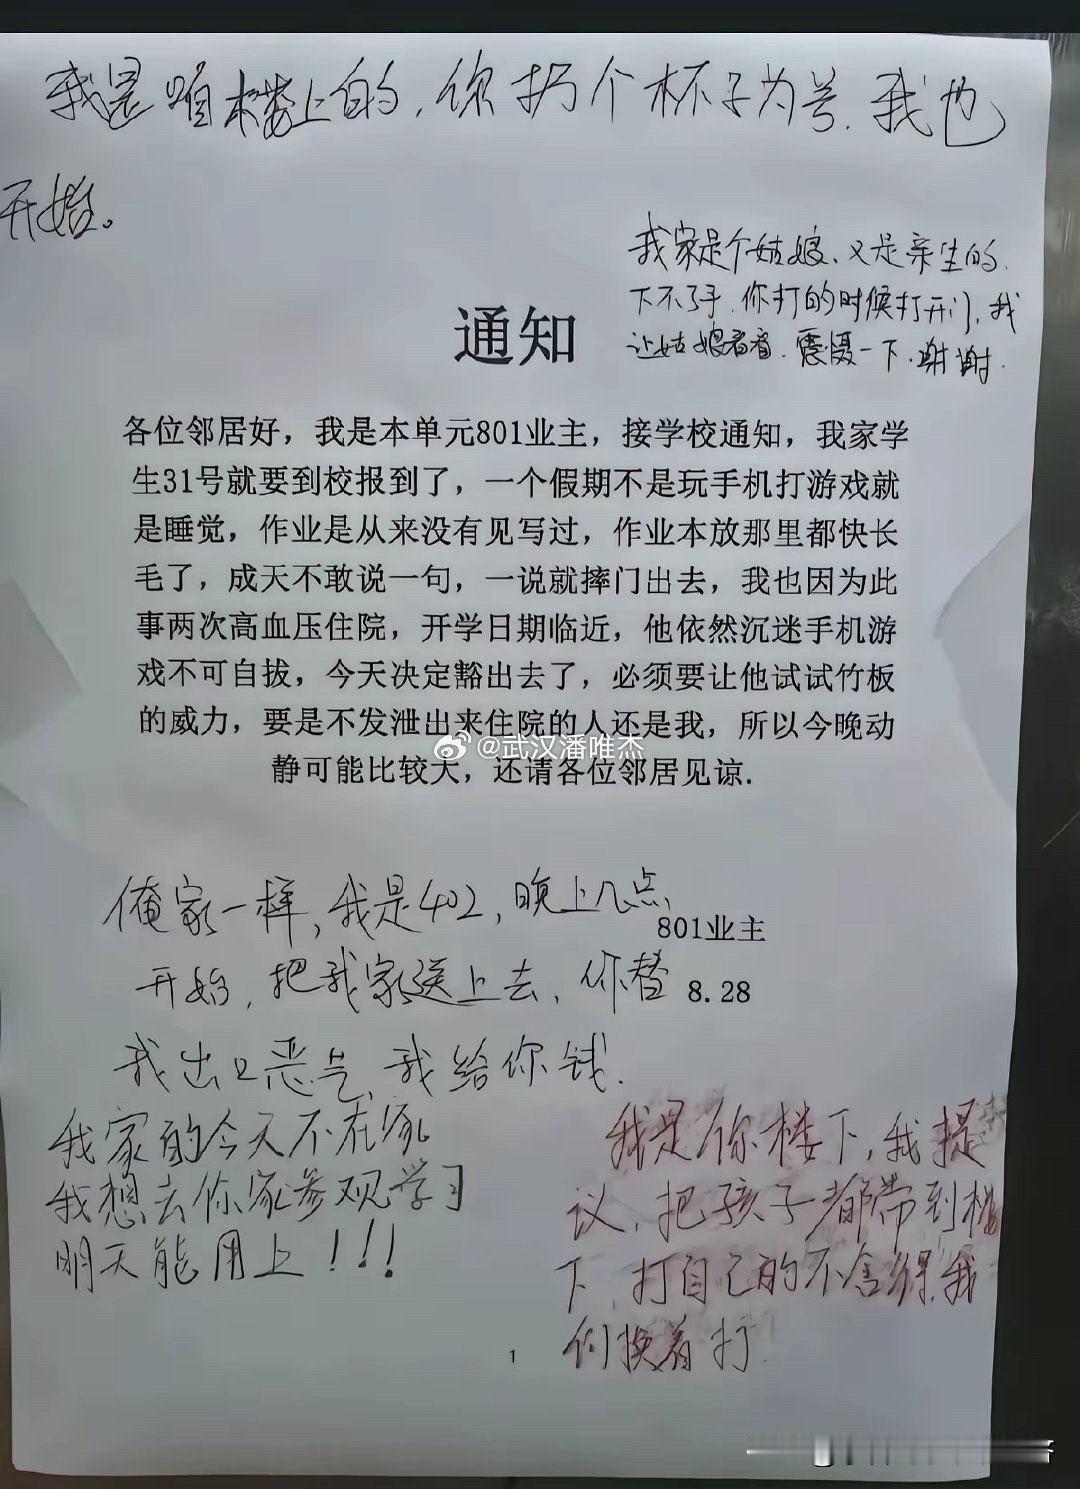 我是咱楼上的，你扔个杯子为号，我也
开始。
我家是个姑娘、又是亲生的，
下不了手，你打的时候打开门，我
让姑娘看看，震慑一下，谢谢，
通知
各位邻居好，我是本单元801业主，接学校通知，我家学
生31号就要到校报到了，一个假期不是玩手机打游戏就
是睡觉，作业是从来没有见写过，作业本放那里都快长
毛了，成天不敢说一句，一说就摔门出去，我也因为此
事两次高血压住院，开学日期临近，他依然沉迷手机游
戏不可自拔，今天决定豁出去了，必须要让他试试竹板
的威力，要是不发泄出来住院的人还是我，所以今晚动
静可能比较大，还请各位邻居见谅.
@武汉潘唯杰
俺家一样，我是402，晚上几点
开始，把我家送上去，你替
我出口恶气，我给你钱.
801业主
8.28
我家的今天不在家
我想去你家参观学习
明天能用上！！！
我是你楼下，我提
议，把孩子都带到楼
下，打自己的不舍得，我
们换着打.
1